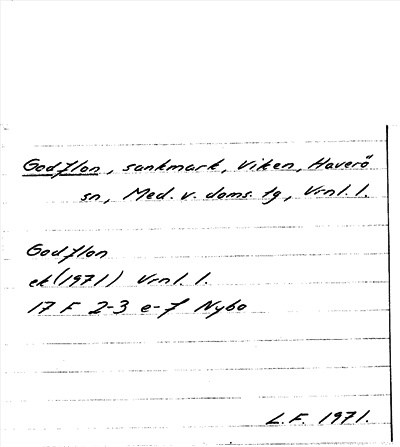 Godflon, sankmark, Viken, Haverö
sn, Med. v. doms. tg, Vrnl. l.
Godflon
ek (1971) Vrnl. l.
17 F 2-3 e-f Nybo
L.F. 1971.